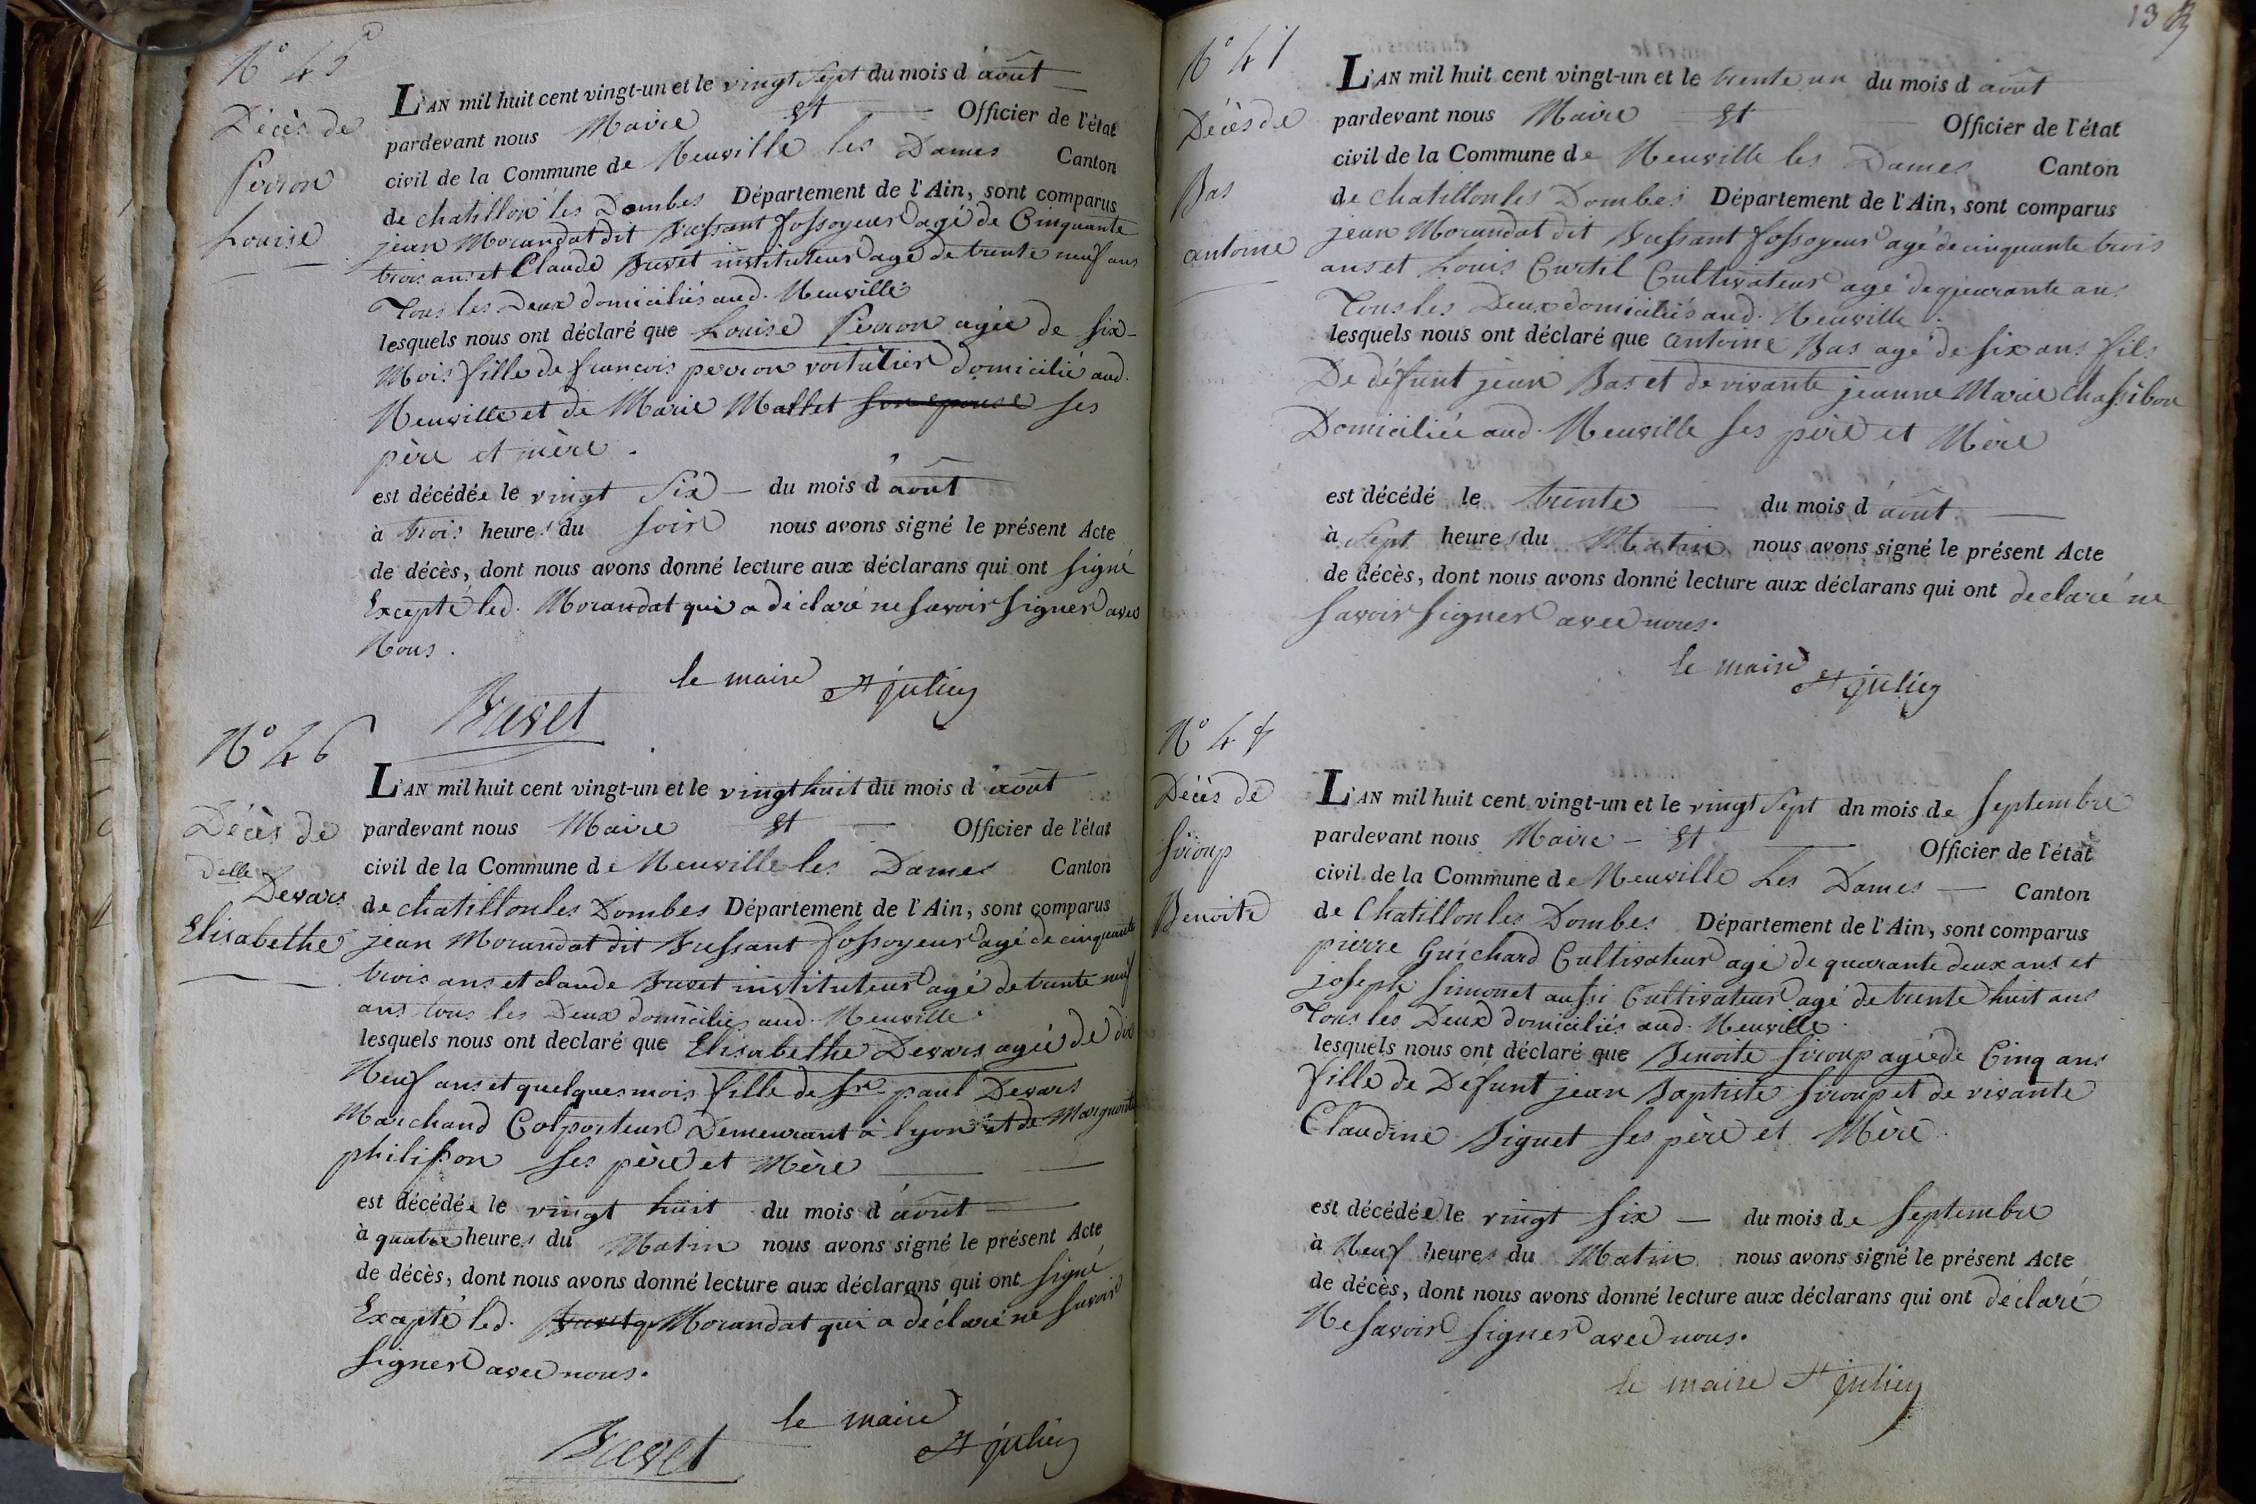 N° 45
Décès de
Perron
Louise
L'AN mil huit cent vingt-un et le vingt sept du mois d'août
pardevant nous Maire et Officier de l'état
civil de la Commune de Neuville les Dames Canton
de chatillon les Dombes Département de l'Ain, sont comparus
jean Morandat dit Bussant fossoyeur agé de Cinquante
trois ans et Claude Buvet instituteur agé de trente neuf ans
Tous les Deux domiciliés aud. Neuville
lesquels nous ont déclaré que Louise Perron agée de six
Mois fille de françois perron voitutier domicilié aud.
Neuville et de Marie Mallet son epouse ses
père et mère.
est décédée le vingt six du mois d'août
à trois heures du soir nous avons signé le présent Acte
de décès, dont nous avons donné lecture aux déclarans qui ont signé
Excepté led. Morandat qui a déclaré ne savoir signer avec
Nous.
le maire St julien
Buvet
N° 46
Décès de
Delle
Devars
Elisabethe
L'AN mil huit cent vingt-un et le vingt huit du mois d'août
pardevant nous Maire et Officier de l'état
civil de la Commune de Neuville les Dames Canton
de chatillon les Dombes Département de l'Ain, sont comparus
jean Morandat dit Bussant fossoyeur agé de cinquante
trois ans et claude Buvet instituteur agé de trente neuf
ans tous les Deux domiciliés aud. Neuville.
lesquels nous ont declaré que Elisabethe Devars agée de dix
Neuf ans et quelques mois fille de Sr paul Devars
Marchand Colporteur Demeurant à lyon et de Marguerite
philippon ses père et Mère
est décédée le vingt huit du mois d'août
à quatre heures du Matin nous avons signé le présent Acte
de décès, dont nous avons donné lecture aux déclarans qui ont signé
Excepté led. Buvet q Morandat qui a déclaré ne savoir
signer avec nous.
le maire
Buvet St julien
13
N° 47
Décès de
Bas
antoine
L'AN mil huit cent vingt-un et le trente un du mois d'août
pardevant nous Maire et Officier de l'état
civil de la Commune de Neuville les Dames Canton
de chatillon les Dombes Département de l'Ain, sont comparus
jean Morandat dit Bussant fossoyeur agé de cinquante trois
ans et Louis Curtil Cultivateur agé de quarante ans
Tous les Deux domiciliés aud. Neuville.
lesquels nous ont déclaré que antoine Bas agé de six ans fils
De défunt jean Bas et de vivante jeanne Marie Chassibou
Domiciliée aud. Neuville ses père et Mère
est décédé le trente du mois d'août
à sept heures du Matin nous avons signé le présent Acte
de décès, dont nous avons donné lecture aux déclarans qui ont declaré ne
savoir signer avec nous.
le maire St julien
N° 48
Décès de
Siroup
Benoite
L'AN mil huit cent vingt-un et le vingt sept dn mois de septembre
pardevant nous Maire et Officier de l'état
civil de la Commune de Neuville Les Dames Canton
de Chatillon les Dombes Département de l'Ain, sont comparus
pierre Guichard Cultivateur agé de quarante deux ans et
joseph simonet aussi Cultivateur agé de trente huit ans
Tous les Deux domiciliés aud. Neuville.
lesquels nous ont déclaré que Benoite Siroup agée de Cinq ans
fille de Défunt jean Baptiste siroup et de vivante
Claudine Biguet ses père et Mère
est décédée le vingt six du mois de septembre
à Neuf heures du Matin nous avons signé le présent Acte
de décès, dont nous avons donné lecture aux déclarans qui ont déclaré
Ne savoir signer avec nous.
le maire St julien